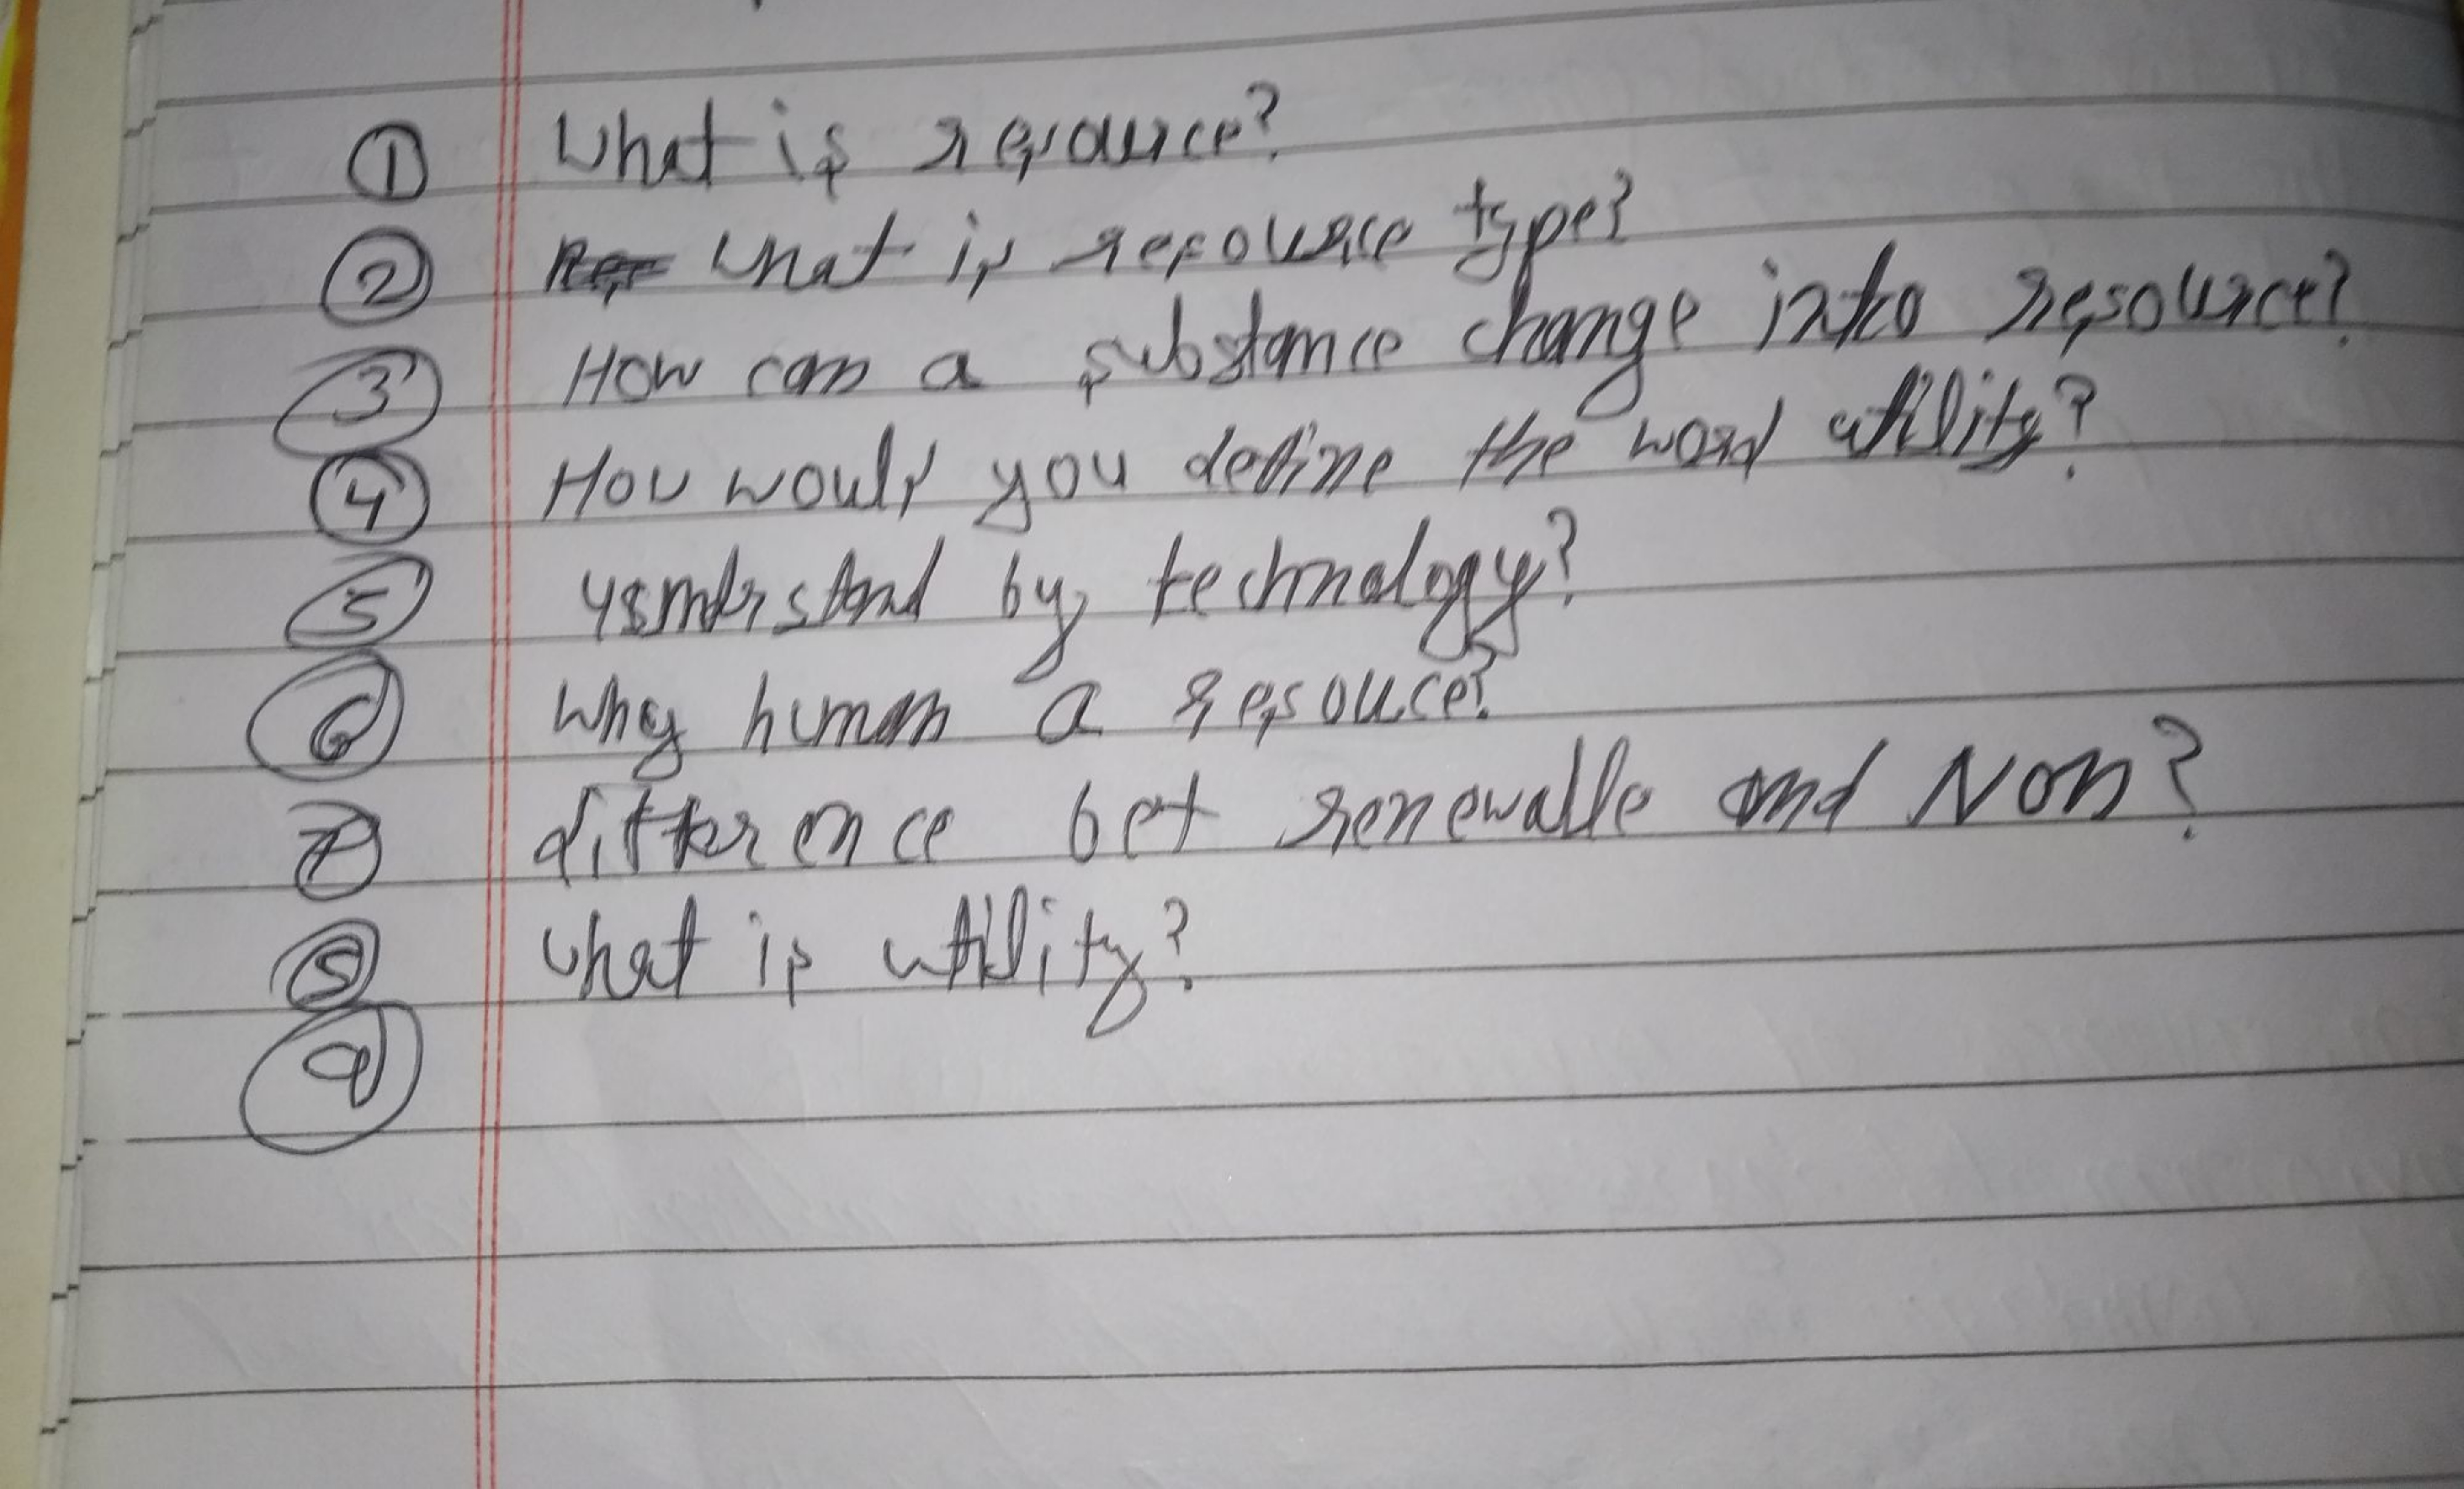 1 What is resource?
2 What is resource type?
3 How can a substance change into resource?
4 How would you define the word utility?
5 by technology?
6 Why human a resouce?
7 difference bet renewable and Non?
8 What is utility?
9